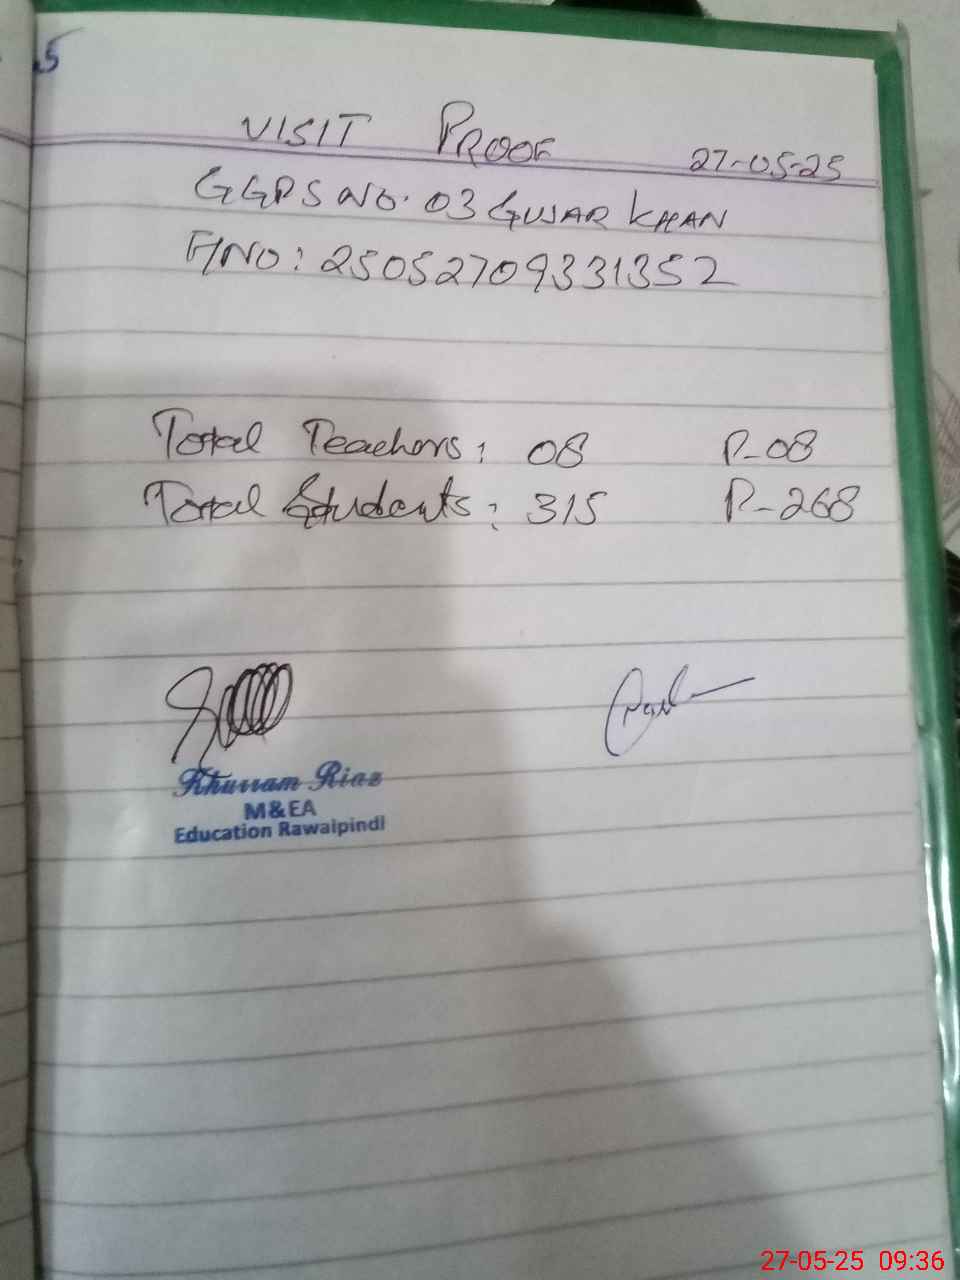 5
VISIT PROOF 27-05-25
GGPS NO. 03 GUJAR KHAN
F/NO: 25052709331352
Total Teachers: 08 P-08
Total Students: 315 P-268
Khurram Riaz
M&EA
Education Rawalpindi
27-05-25 09:36